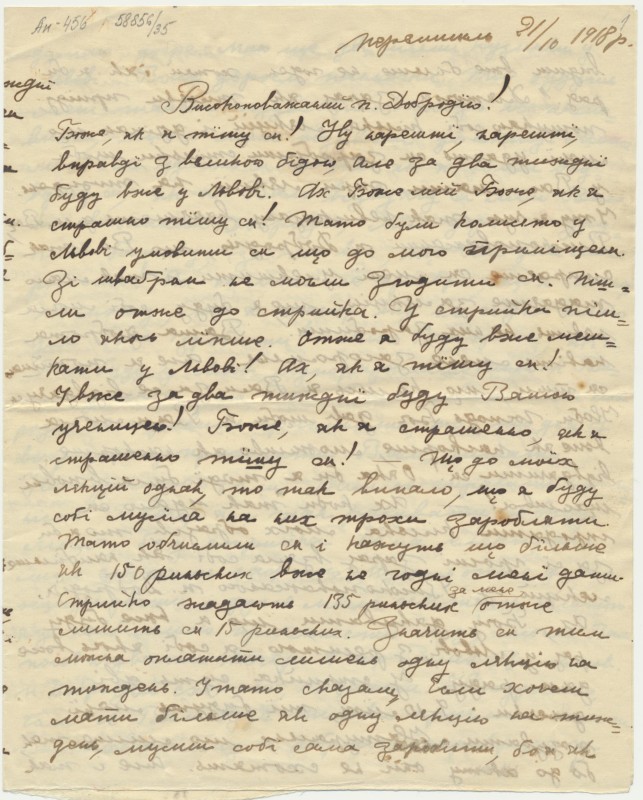 Ап-456 58656/35
1
Перемишль 21/10 1918 р.
Високоповажаний п. Добродію!
Боже, як я тішу ся! Ну нарешті, нарешті,
вправді з великою бідою, але за два тижднї
буду вже у Львові. Ах Боже мій Боже, як я
страшно тішу ся! Тато були намисто у
Львові умовити ся що до мого приміщеня.
Зі швабрам не могли згодити ся. Піш=
ли отже до стрийка. У стрийка піш=
ло якось лїпше. Отже я буду вже меш=
кати у Львові! Ах, як я тішу ся!
І вже за два тижднї буду Вашою
ученицею! Боже, як я страшенно, як я
страшенно тішу ся! Що до моїх
лєкций однак, то так випало, що я буду
собі мусїла на них трохи заробляти.
Тато обчислили ся і кажуть що більше
як 150 риньских вже не годнї менї дати.
Стрийко жадають 135 риньских за мене отже
лишить ся 15 риньских. Значить ся тим
можна оплатити лишень одну лєкцію на
тиждень. І тато сказали, коли хочеш
мати більше як одну лєкцію на тиж=
день, мусиш собі сама заробити, бо я як